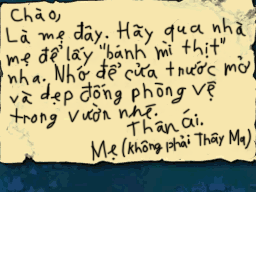 Chào,
Là mẹ đây. Hãy qua nhà
mẹ để lấy "bánh mì thịt"
nha. Nhớ để cửa trước mở
và dẹp đống phòng vệ
trong vườn nhé.
Thân ái.
Mẹ (không phải Thây Ma)